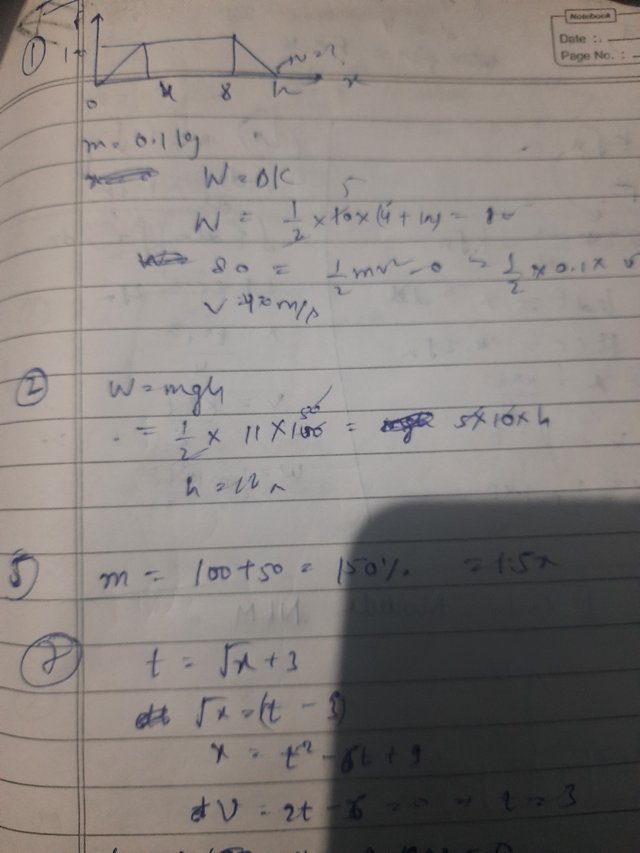 Notebook
Date :.
Page No. :
①
0 4 8 12 x
m = 0.1 kg
W = ΔK
5
W = 1/2 × 10 × (4 + 12) = 80
80 = 1/2 mv² - 0 = 1/2 × 0.1 × v
V = 40 m/s
②
W = mgh
= 1/2 × 11 × 100 = 5 × 10 × h
h = 22 m
5)
m = 100 + 50 = 150% = 1.5x
⑦
t = √x + 3
√x = (t - 3)
x = t² - 6t + 9
V = 2t - 6 = 0 = t = 3